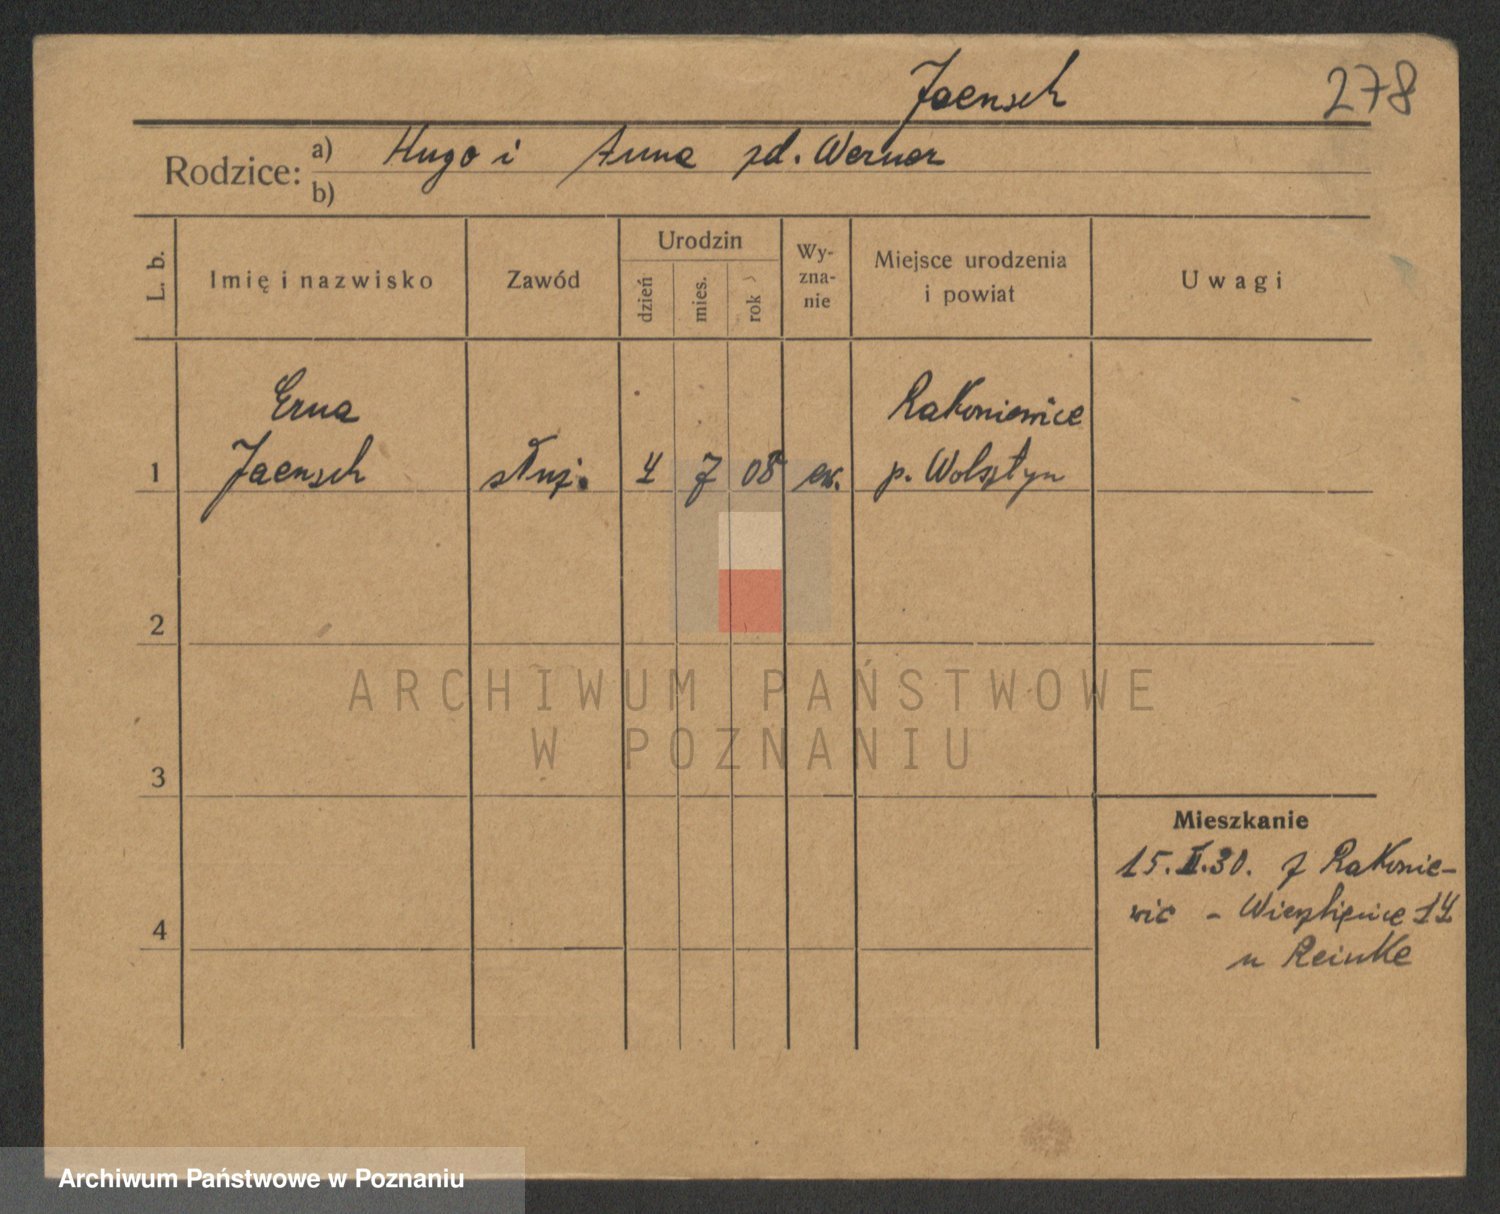 Jaensch 278
Rodzice: a) Hugo i Anna zd. Werner
b)
L. b. Imię i nazwisko Zawód Urodzin dzień mies. rok Wy-zna-nie Miejsce urodzenia i powiat Uwagi
Erna Rakoniewice
1 Jaensch służ. 4 7 08 ew. p. Wolsztyn
2
ARCHIWUM PAŃSTWOWE
W POZNANIU
3
Mieszkanie
15.II.30. z Rakonie-
wic - Wierzbięcice 14
4
u Reinke
Archiwum Państwowe w Poznaniu